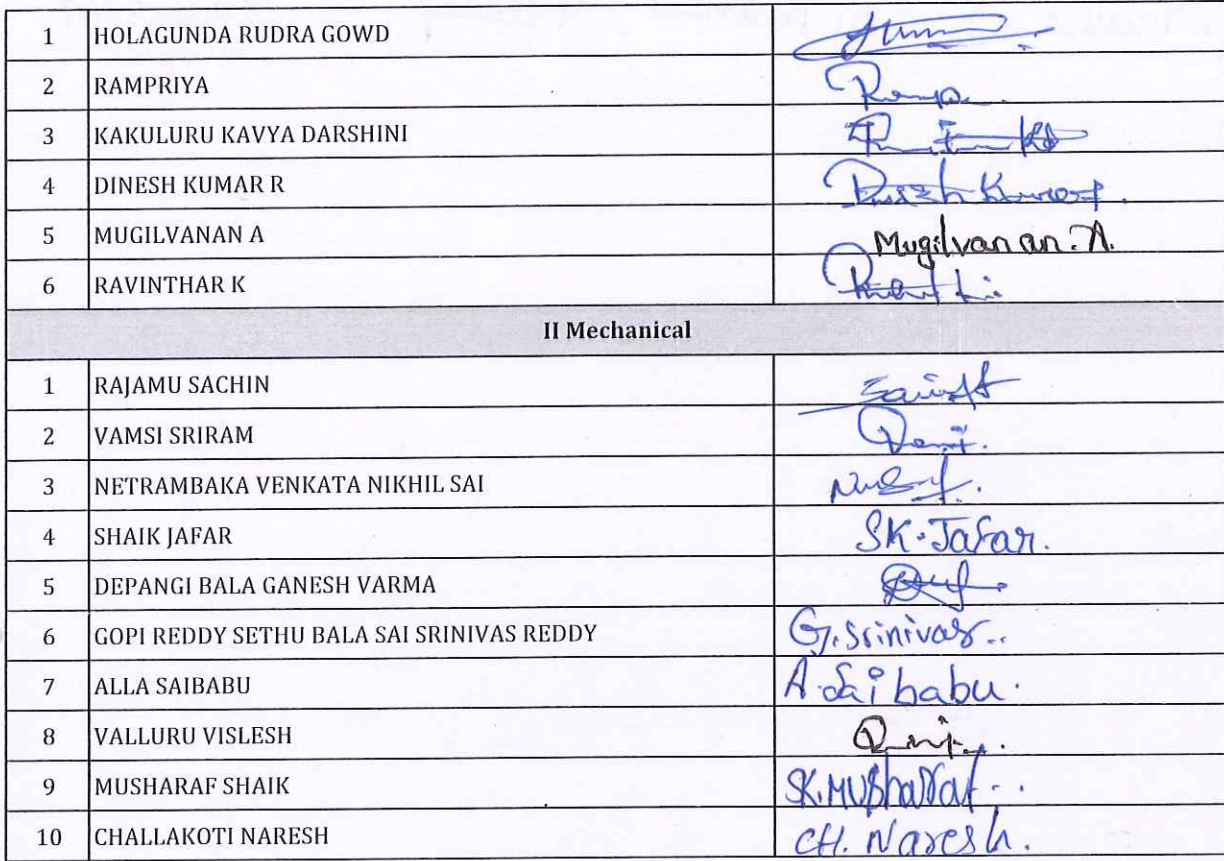 1 HOLAGUNDA RUDRA GOWD
2 RAMPRIYA
3 KAKULURU KAVYA DARSHINI
4 DINESH KUMAR R Dinesh Kumar
5 MUGILVANAN A Mugilvanan. A.
6 RAVINTHAR K
II Mechanical
1 RAJAMU SACHIN
2 VAMSI SRIRAM
3 NETRAMBAKA VENKATA NIKHIL SAI
4 SHAIK JAFAR SK. Jafar.
5 DEPANGI BALA GANESH VARMA
6 GOPI REDDY SETHU BALA SAI SRINIVAS REDDY G. Srinivas..
7 ALLA SAIBABU A. Sai babu.
8 VALLURU VISLESH
9 MUSHARAF SHAIK SK. Musharaf..
10 CHALLAKOTI NARESH CH. Naresh.